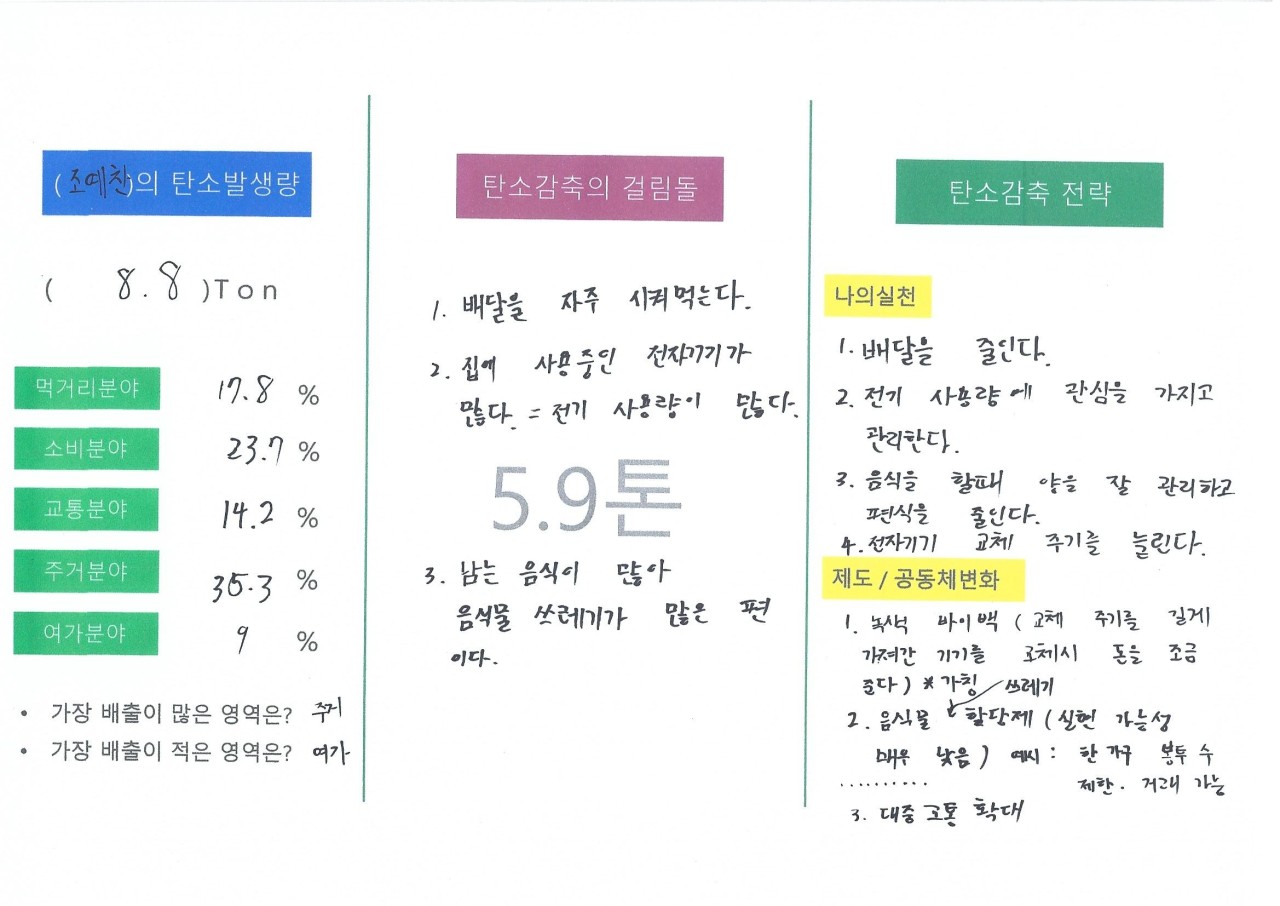 (조예찬)의 탄소발생량
( 8.8 )Ton
먹거리분야 17.8 %
소비분야 23.7 %
교통분야 14.2 %
주거분야 35.3 %
여가분야 9 %
• 가장 배출이 많은 영역은? 주거
• 가장 배출이 적은 영역은? 여가
탄소감축의 걸림돌
1. 배달을 자주 시켜먹는다.
2. 집에 사용중인 전자기기가
많다. = 전기 사용량이 많다.
5.9톤
3. 남는 음식이 많아
음식물 쓰레기가 많은 편
이다.
탄소감축 전략
나의실천
1. 배달을 줄인다.
2. 전기 사용량에 관심을 가지고
관리한다.
3. 음식을 할때 양을 잘 관리하고
편식을 줄인다.
4. 전자기기 교체 주기를 늘린다.
제도 / 공동체변화
1. 녹색 바이백 (교체 주기를 길게
가져간 기기를 교체시 돈을 조금
준다) * 가칭
쓰레기
2. 음식물 할당제 (실현 가능성
매우 낮음) 예시 : 한 가구 봉투 수
제한. 거래 가능
..........
3. 대중교통 확대